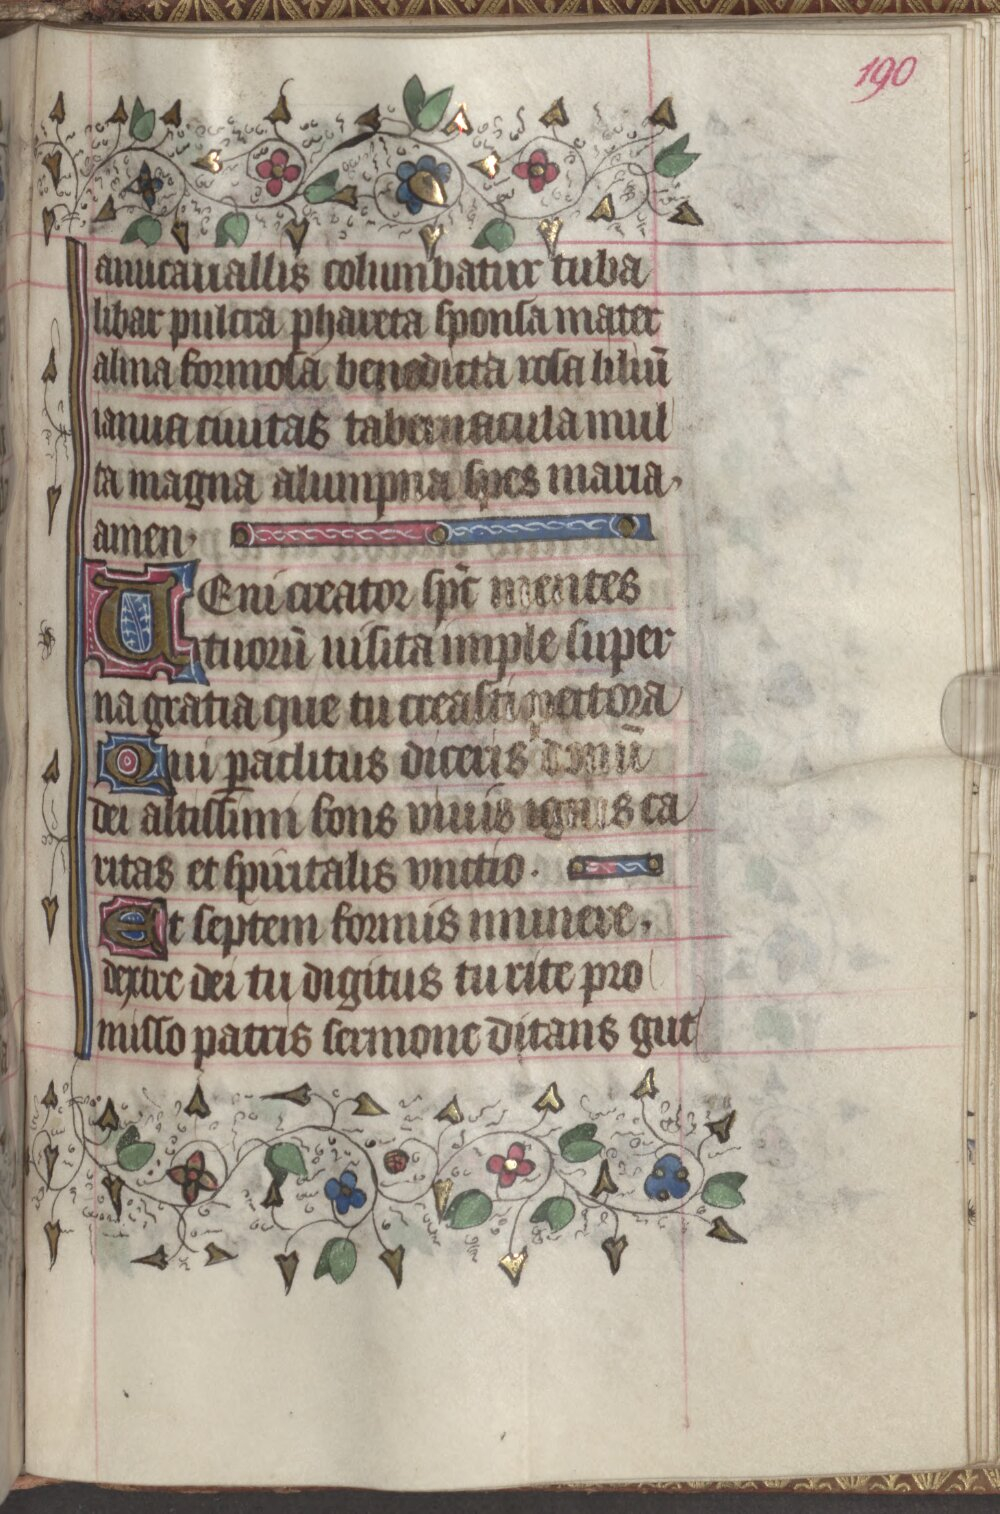 190
amicauallis columbatur tuba
libar pulcra pharetra sponsa mater
alma formosa benedicta rosa liliū
ianua ciuitas tabernacula mul
ta magna alumpna spes maria,
amen,
UEni creator spc̄ mentes
tuorū uisita imple super
na gratia que tu creasti pectora
Qui paclitus diceris donū
dei altissimi fons viuis ignis ca
ritas et spiritalis vnctio.
Et septem formis munere,
dextre dei tu digitus tu rite pro
misso patris sermone ditans gut